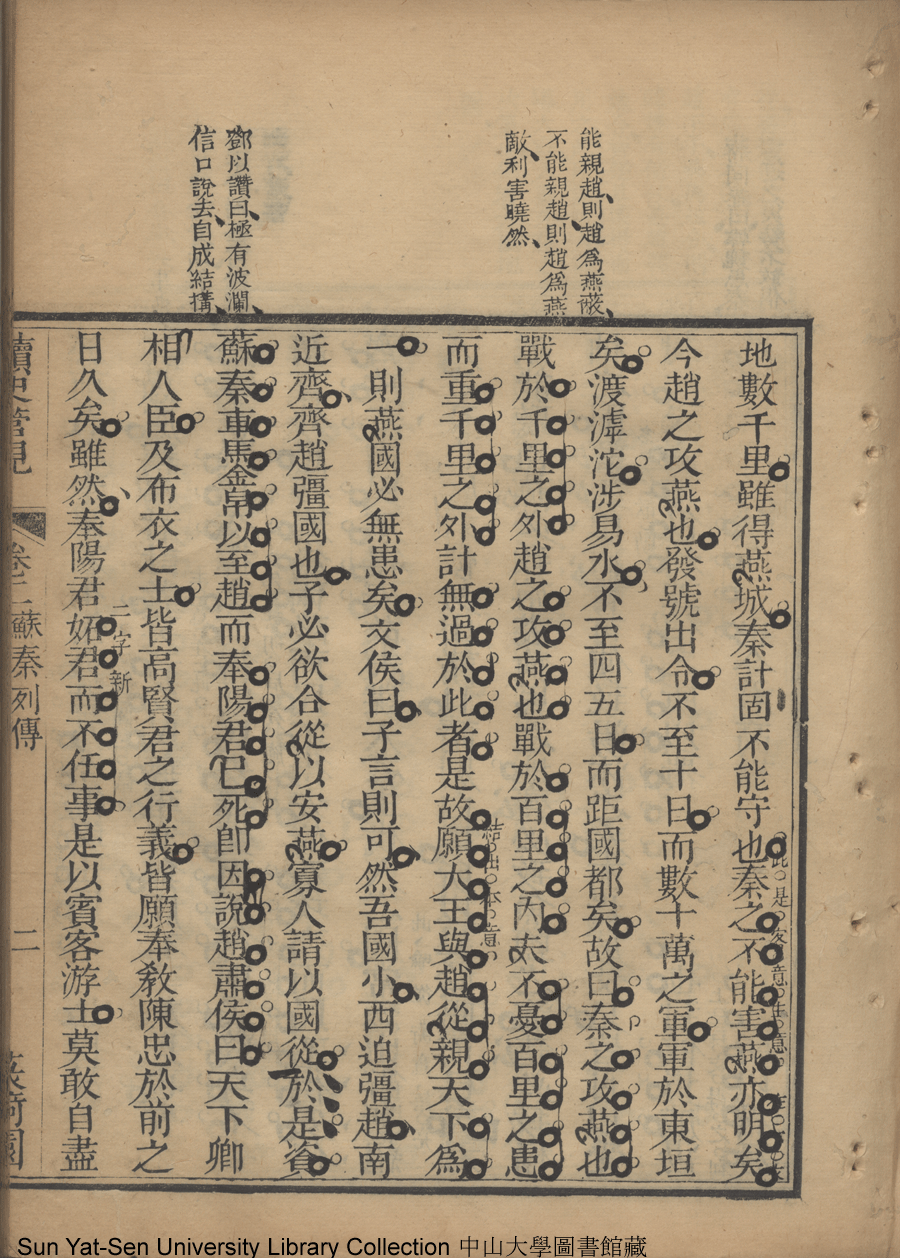 能親趙則趙爲燕蔽
不能親趙則趙爲燕
敵利害曉然
鄧以讚曰極有波瀾
信口說去自成結搆
地數千里雖得燕城秦計固不能守也秦之不能害燕亦明矣
今趙之攻燕也發號出令不至十日而數十萬之軍軍於東垣
矣渡滹沱涉易水不至四五日而距國都矣故曰秦之攻燕也
戰於千里之外趙之攻燕也戰於百里之內夫不憂百里之患
而重千里之外計無過於此者是故願大王與趙從親天下爲
結出本意
一則燕國必無患矣文侯曰子言則可然吾國小西迫彊趙南
近齊齊趙彊國也子必欲合從以安燕寡人請以國從於是資
蘇秦車馬金帛以至趙而奉陽君已死卽因說趙肅侯曰天下卿
相人臣及布衣之士皆高賢君之行義皆願奉敎陳忠於前之
二字新
日久矣雖然奉陽君妬君而不任事是以賓客游士莫敢自盡
讀史管見
卷二蘇秦列傳
二
Sun Yat-Sen University Library Collection 中山大學圖書館藏